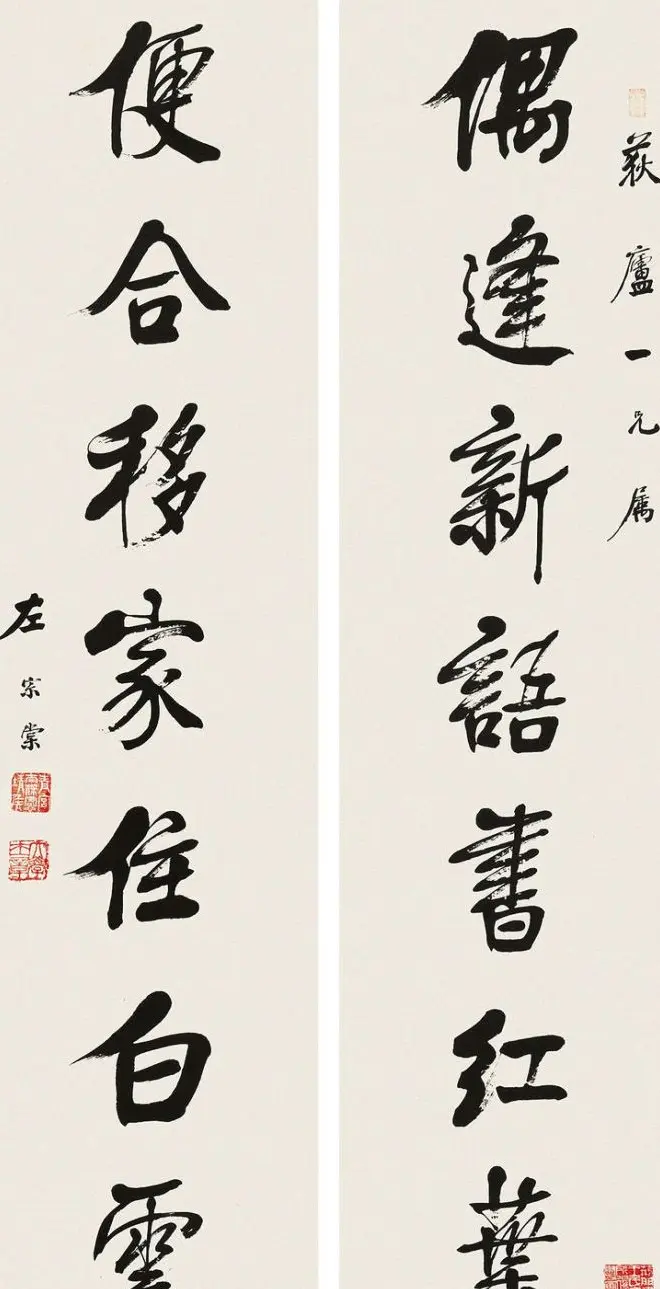 荻廬一兄属
偶逢新語書紅葉
便合移家住白雲
左宗棠